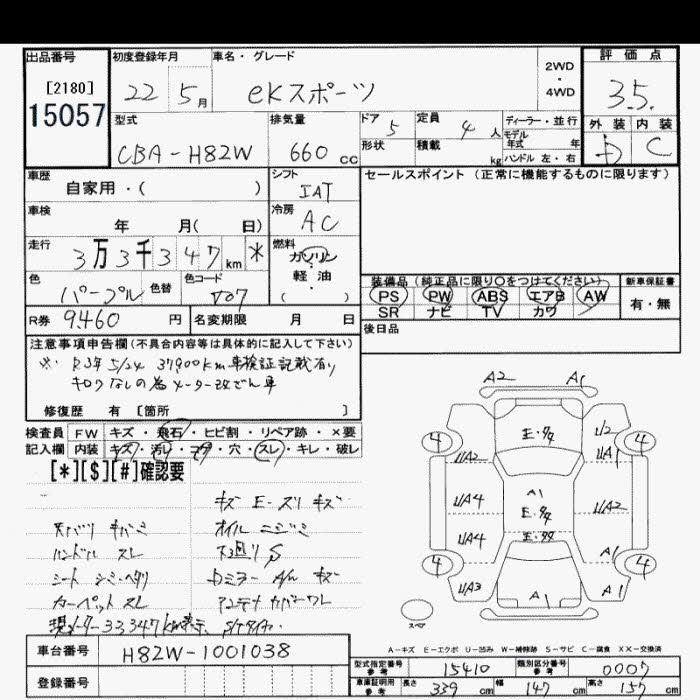 出品番号 初度登録年月 車名・グレード 評価点
[2180] 22 5月 eKスポーツ 2WD・4WD 3.5.
15057
型式 排気量 ドア 5 定員 4人 ディーラー・並行 外装 内装
CBA-H82W 660cc 形状 積載 kg モデル年式 年 ハンドル 左・右 D C
車歴 自家用・( ) シフト IAT セールスポイント (正常に機能するものに限ります)
車検 年 月( 日) 冷房 AC
走行 3万3千347km * 燃料 ガソリン・軽油・( )
色 パープル 色替 色コード 装備品 (純正品に限り○をつけてください) 新車保証書
PS PW ABS エアB AW 有・無
SR ナビ TV カワ
R券 9460円 名変期限 月 日 後日品
注意事項申告欄(不具合内容等は具体的に記入して下さい)
※ R3年 5/24 37900km 車検証記載有り
キロクなしの為 メーター改ざん車
修復歴 有 [箇所 ]
検査員 FW キズ・飛石・ヒビ割・リペア跡・×要
記入欄 内装 キズ・汚レ・コゲ・穴・スレ・キレ・破レ
[*][$][#]確認要
キズ エーズリ キズ
オイル ニジミ
ハンドル スレ 下廻り S
シート シミ・ヘタリ Dミラー A/n キズ
カーペット スレ アンテナ カバーワレ
現メーター33347km表示、
A2 A1
4 E・ U2 4
U/A2 U/A1
A1
U/A4 E・ U/A2
U/A4 E・ A1
4 4
U/A3 A1 A1
スペア
A-キズ E-エクボ U-凹み W-補修跡 S-サビ C-腐食 XX-交換済
車台番号 H82W-1001038
型式指定番号 参考 15410 類別区分番号 参考 0007
登録番号
車庫証明用 参考 長さ 339cm 幅 147cm 高さ 157cm